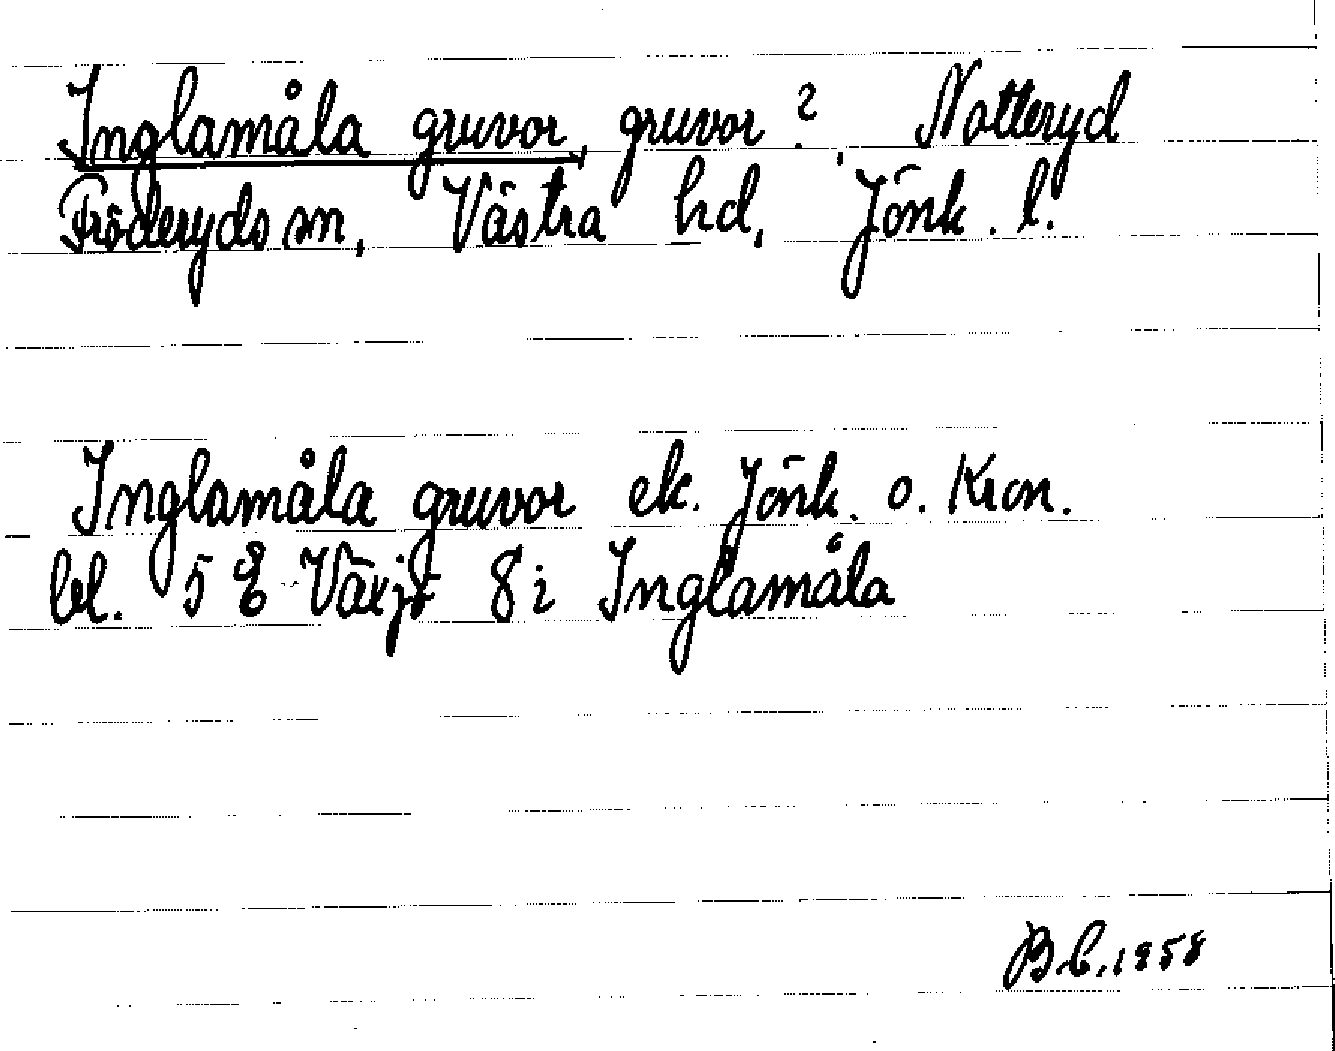 Inglamåla gruvor, gruvor?, Notteryd
Fröderyds sn, Västra hd, Jönk. l.
Inglamåla gruvor ek. Jönk. o. Kron.
bl. 5 E Växjö 8 i Inglamåla
B.C. 1958